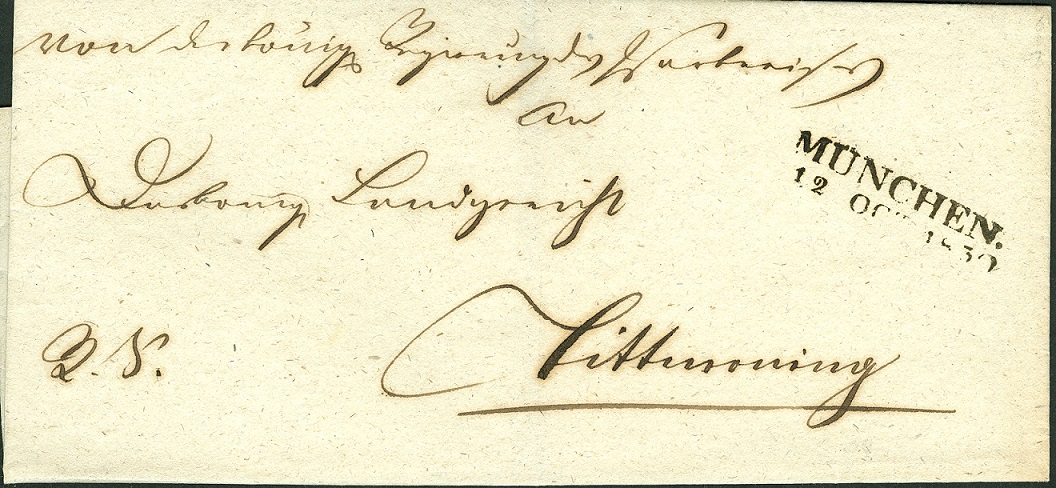 Von der königl. Regierung des Isarkreises
An
Das königl. Landgericht
MÜNCHEN.
12 OCT 1830
R. S.
Tittmoning